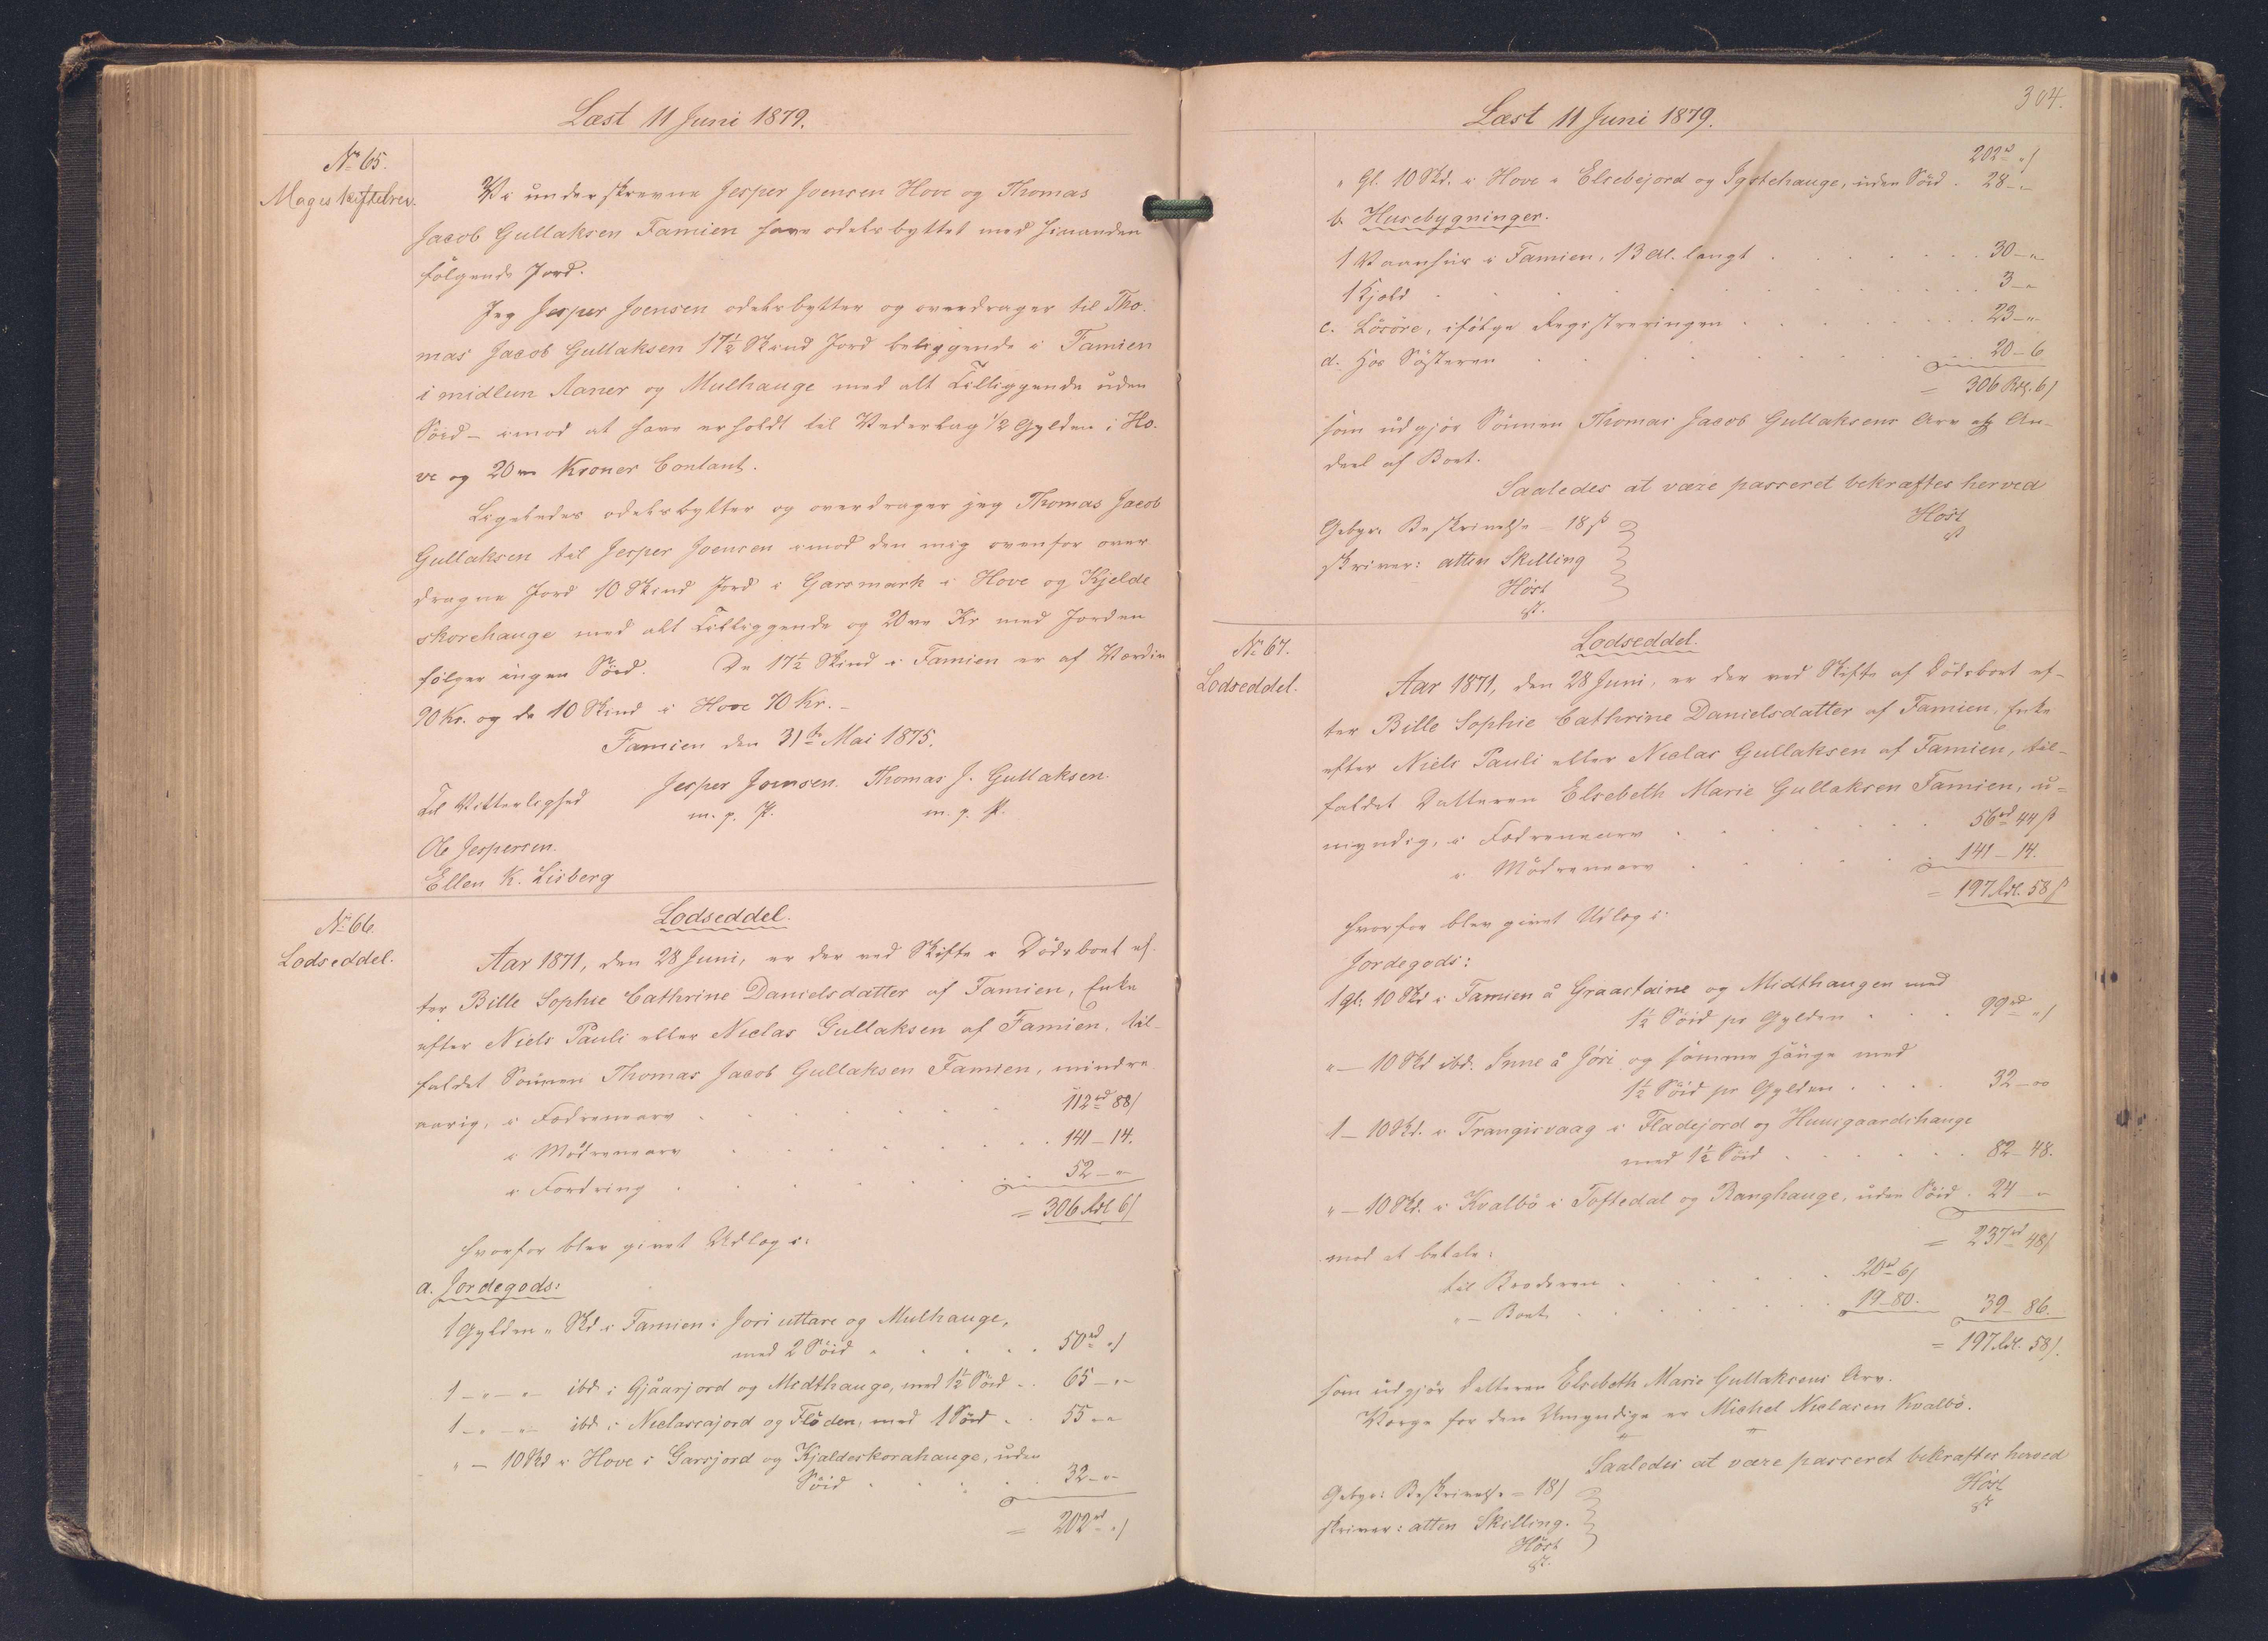 Læst 11 Juni 1879.
No 65.
Mageskiftebrev.
Vi underskrevne Jesper Joensen Hove og Thomas
Jacob Gullaksen Famien have odelsbyttet med hinanden
følgende Jord.
Jeg Jesper Joensen odelsbytter og overdrager til Tho-
mas Jacob Gullaksen 17½ Skind Jord beliggende i Famien
i midlun Aaner og Mulhauge med alt Tilliggende uden
Söid - imod at have erholdt til Vederlag 1/2 Gylden i Ho-
ve og 20ve Kroner Contant.
Ligeledes odelsbytter og overdrager jeg Thomas Jacob
Gullaksen til Jesper Joensen imod den mig ovenfor over
dragne Jord 10 Skind Jord i Garsmark i Hove og Kjelde
skorehauge med alt Tilliggende og 20ve Kr med Jorden
følger ingen Söid. De 17½ Skind i Famien er af Værdie
90 Kr. og de 10 Skind i Hove 70 Kr. -
Famien den 31te Mai 1875.
Jesper Joensen. Thomas J. Gullaksen.
Til Vitterlighed m. p. P. m. p. P.
Ole Jespersen.
Ellen K. Lisberg
No 66.
Lodseddel.
Lodseddel.
Aar 1871, den 28 Juni, er der ved Skifte i Dödsboet ef-
ter Bille Sophie Cathrine Danielsdatter af Famien, Enke
efter Niels Pauli eller Niclas Gullaksen af Famien, til-
faldet Sönnen Thomas Jacob Gullaksen Famien, mindre
aarig, i Fædrenearv . . . 112rd 88ſ
i Mödrenearv . . . 141 - 14.
i Fordring . . . 52 - "
= 306 Rdl 6ſ
hvorfor blev givet Udlæg i:
a. Jordegods:
1 Gylden " Skd i Famien i Jori uttare og Mulhauge,
med 2 Söid . . . 50rd "ſ
1 - " - " - ibd. i Gjáarjord og Medthauge, med 1½ Söid . . 65 - "
1 - " - " - ibd. i Niclassajord og Flöden, med 1 Söid . . 55 - "
" - 10 Skd i Hove i Garsjord og Kjaldeskorahauge, uden
Söid . . . 32 - "
= 202rd "ſ
304.
Læst 11 Juni 1879.
202rd "ſ
" Gl. 10 Skd. i Hove i Elsebejord og Igstehauge, uden Söid . 28 - "
b. Husebygninger.
1 Vaanhus i Famien, 13 Al. langt . . . 30 - "
1 Hjold . . . 3 - "
c. Lösöre, ifölge Registreringen . . . 23 - "
d. Hos Sösteren . . . 20 - 6
= 306 Rdl. 6ſ
som udgjör Sönnen Thomas Jacob Gullaksens Arv og An-
deel af Boet.
Saaledes at være passeret bekræftes herved
Höst
Gebyr: Beskrivelse - 18 ß
skriver: atten Skilling
Höst
No 67.
Lodseddel.
Lodseddel.
Aar 1871, den 28 Juni, er der ved Skifte af Dödsboet ef-
ter Bille Sophie Cathrine Danielsdatter af Famien, Enke
efter Niels Pauli eller Niclas Gullaksen af Famien, til-
faldet Datteren Elsebeth Marie Gullaksen Famien, u-
myndig, i Fædrenearv . . . 56rd 44ß
i Mödrenearv . . . 141 - 14.
= 197 Rdl. 58ß
hvorfor blev givet Udlæg i:
Jordegods:
1 Gl. 10 Skd i Famien á Graastaine og Midthaugen med
1½ Söid pr Gylden . . . 99rd "ſ
" - 10 Skd ibd. Inne á Jóri og sömme Hauge med
1½ Söid pr Gylden . . . 32 - "
1 - 10 Skd. i Trangisvaag i Fladejord og Huusgaardshauge
med 1½ Söid . . . 82 - 48.
" - 10 Skd. i Kvalbö i Toftedal og Ranghauge, uden Söid . 24 - "
= 237rd 48ſ
mod at betale:
til Broderen . . . 20rd 6ſ
" - Boet . . . 19 - 80. 39 - 86.
= 197 Rdl. 58ſ.
som udgjör Datteren Elsebeth Marie Gullaksens Arv.
Værge for den Umyndige er Michel Niclasen Kvalbö.
Saaledes at være passeret bekræftes herved
Höst
Gebyr: Beskrivelse = 18ſ
skriver: atten Skilling.
Höst